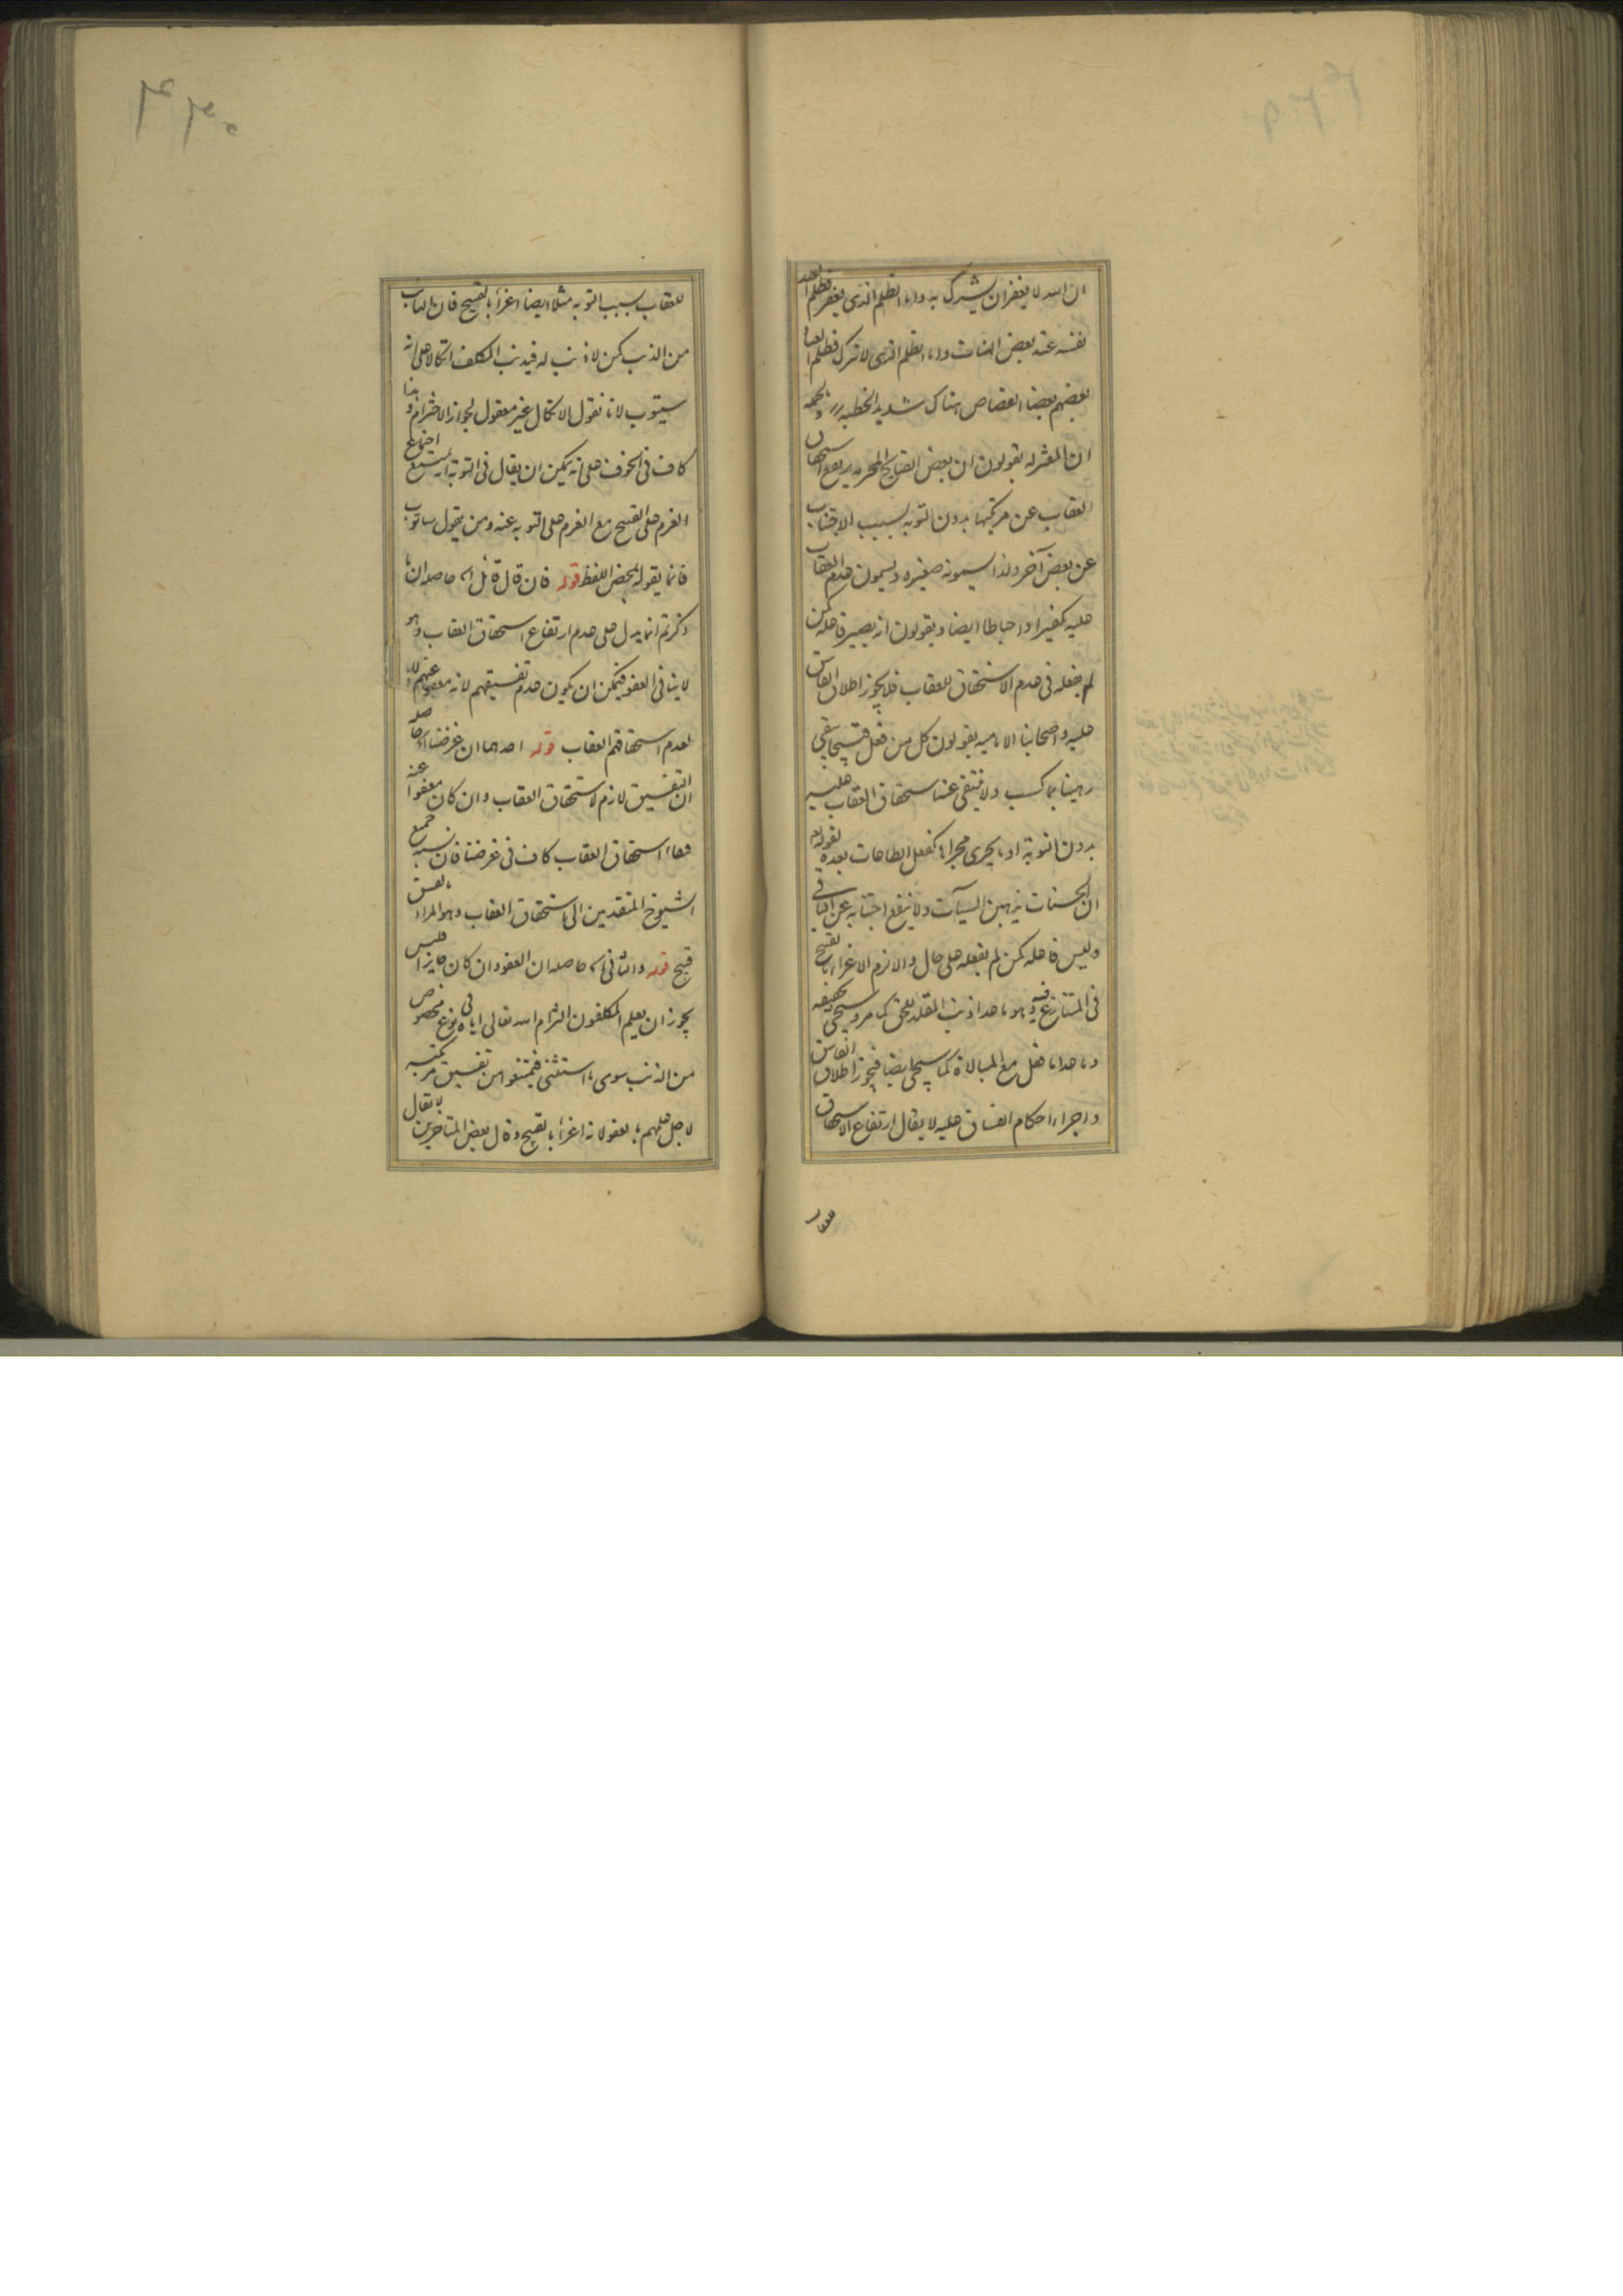 ان الله لا يغفر ان يشرك به واما الظلم الذى يغفر فظلم العبد
نفسه عند بعض الهنات واما الظلم الذى لا يترك فظلم العباد
بعضهم بعضا القصاص هناك شديد الخطبة وبالجمله
ان المعتزله يقولون ان بعض القبايح المحرمه يرفع استحقاق
العقاب عن مرتكبها بدون التوبه بسبب الاجتناب
عن بعض آخر ولذا يسمونه صغيره ويسمون عدم العقاب
عليه تكفيرا واحباطا ايضا ويقولون انه يصير فاعله كمن
لم يفعله فى عدم الاستحقاق للعقاب فلا يجوز اطلاق الفاسق
عليه واصحابنا الاماميه يقولون كل من فعل قبيحا يبقى
رهينا بما كسب ولا ينتفى عنه استحقاق العقاب عليه
بدون التوبة او ما يجرى مجراها كفعل الطاعات بعده لقوله تم
ان الحسنات يذهبن السيآت ولا ينفع اجتنابه عن الباقى
وليس فاعله كمن لم يفعله على حال والا لزم الاغراء بالقبيح
فى المتنازع فيه وهو ما عدا ذنب المقلد للحق كما مر وسيجئ تحقيقه
وما عدا ما فعل مع المبالاة كما سيجئ ايضا فيجوز اطلاق الفاسق
واجراء احكام الفساق عليه لا يقال ارتفاع الاستحقاق
للعقاب
۴۳۰
للعقاب بسبب التوبه مثلا ايضا اغراء بالقبيح فان التايب
من الذنب كمن لا ذنب له فيذنب المكلف اتكالا على انه
سيتوب لانا نقول الاتكال غير معقول لجواز الاخترام وهذا
كاف فى الخوف على انه يمكن ان يقال فى التوبة انه يمتنع اجتماع
العزم على القبيح مع العزم على التوبه عنه ومن يقول ساتوب
فانما يقوله بمحض اللفظ قوله فان قال قائل اه حاصله ان ما
ذكرتم انما يدل على عدم ارتفاع استحقاق العقاب وهو
لا ينافى العفو فيمكن ان يكون عدم تفسيقهم لانه معفو عنهم لا
لعدم استحقاقهم العقاب قوله احدهما ان غرضنا اه حاصله
ان التفسيق لازم لاستحقاق العقاب وان كان معفوا عنه
فبقاء استحقاق العقاب كاف فى غرضنا فان نسبه جميع
الشيوخ المتقدمين الى استحقاق العقاب وهو المراد بالفسق
قبيح قوله والثانى اه حاصله ان العفو وان كان جايزا فليس
يجوز ان يعلم المكلفون التزام الله تعالى اياه فى نوع مخصوص
من الذنب سوى ما استثنى فيمتنعوا من تفسيق مرتكبه
لاجل علمهم بالعفو لانه اغراء بالقبيح وقال بعض المتاخرين لا يقال